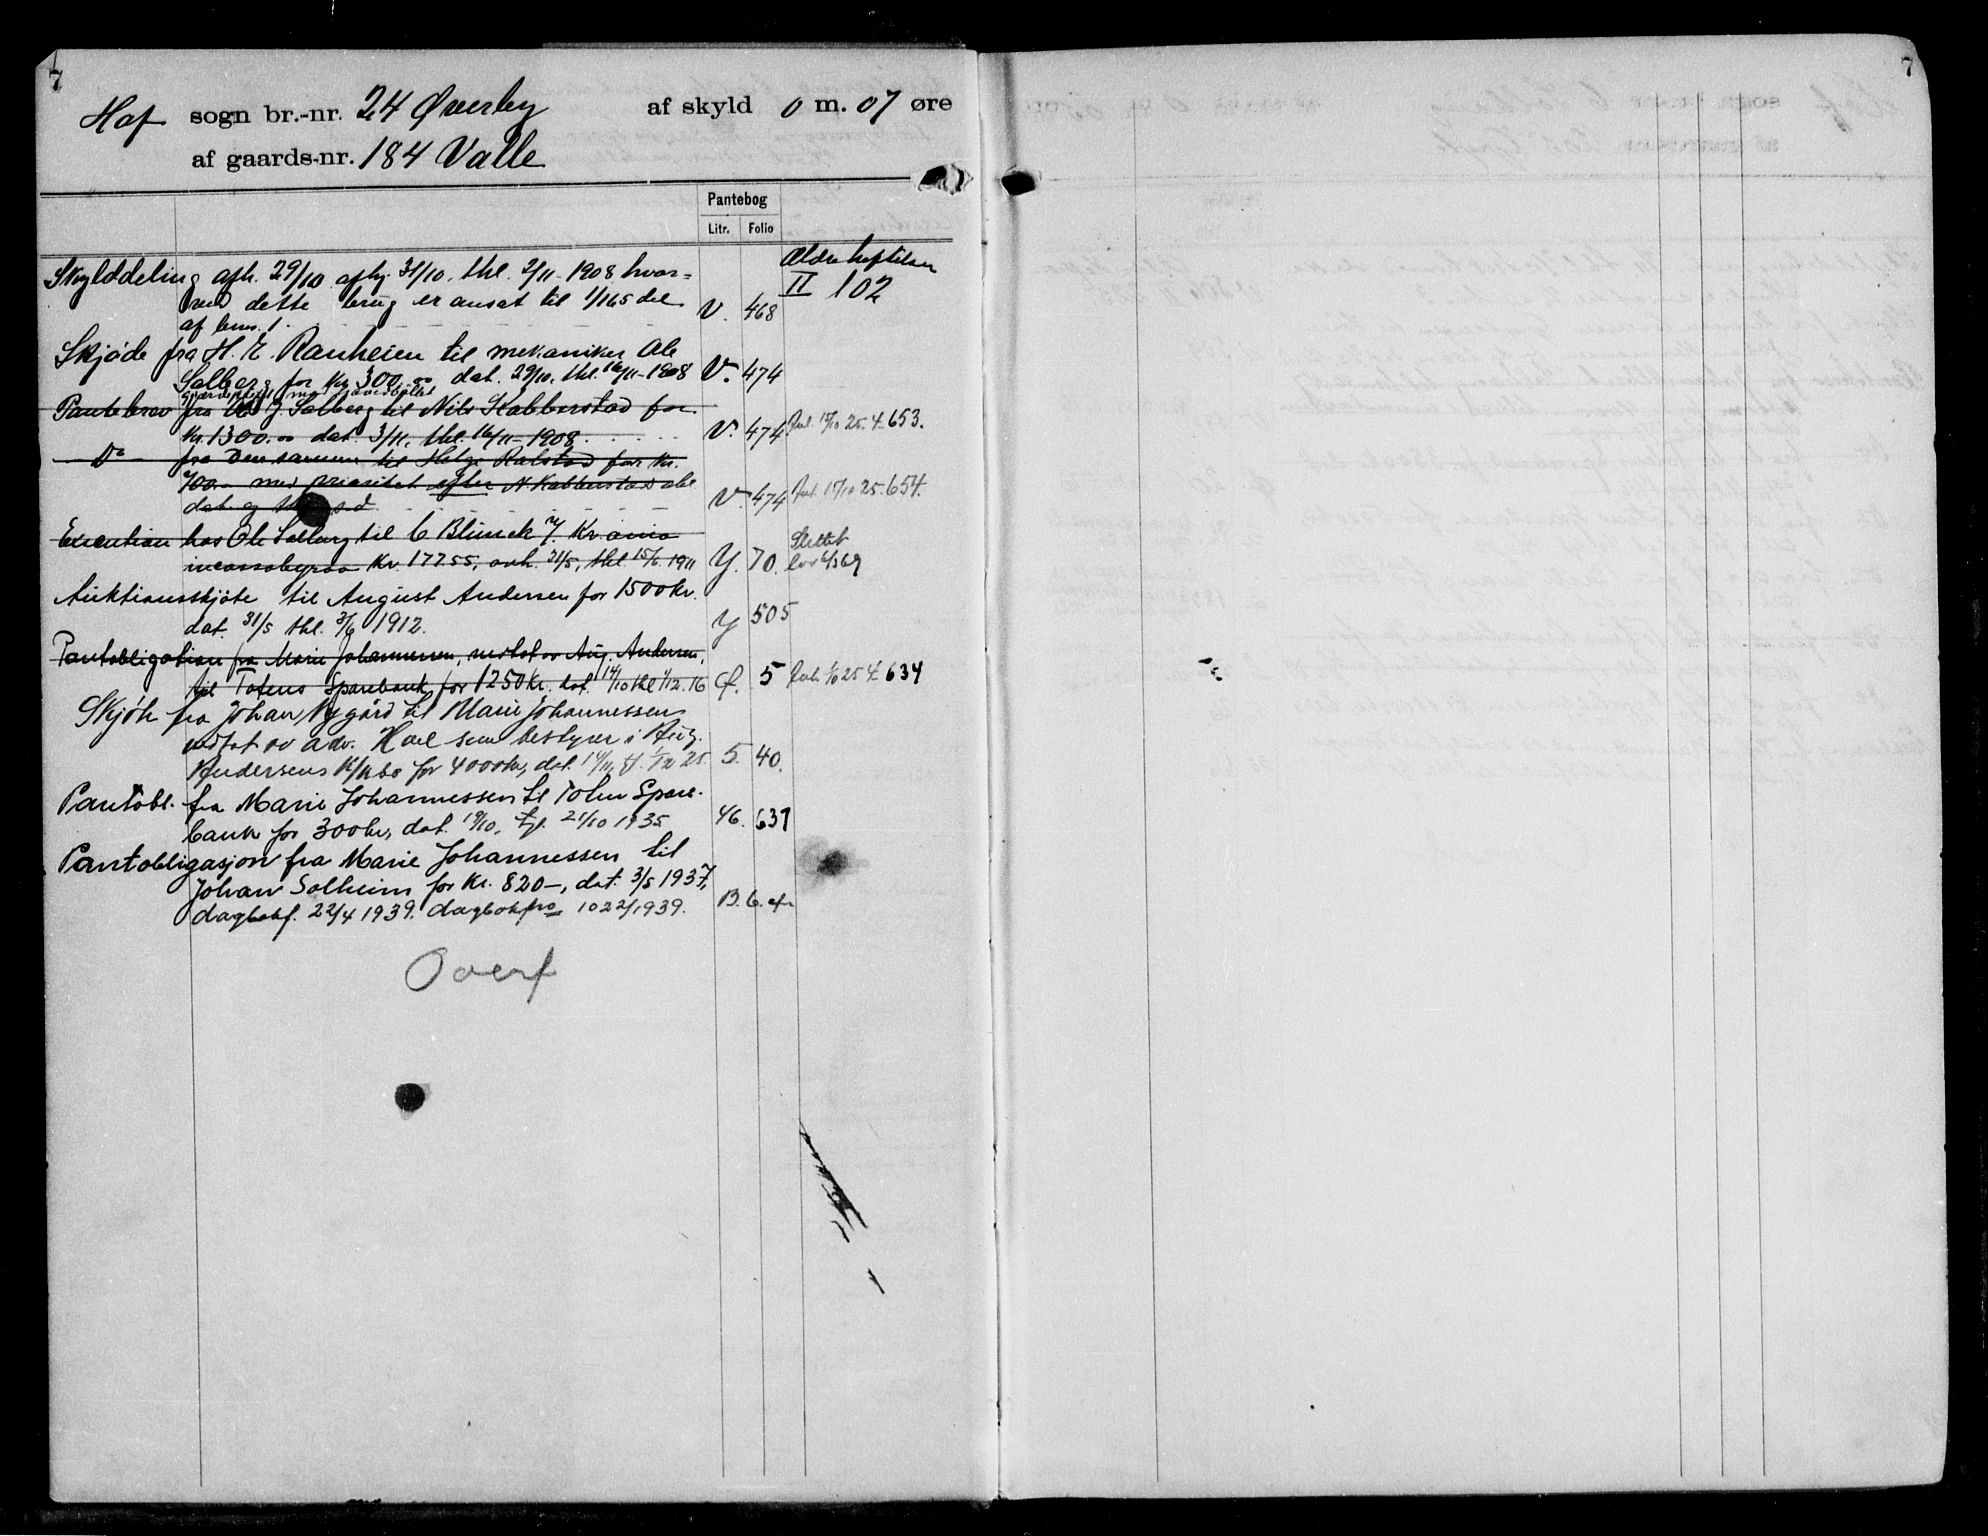 7
Hof sogn br.-nr. 24 Øverby af skyld 0 m. 07 øre
af gaards-nr. 184 Valle
Pantebog
Litr. Folio
Ældre heftelser
II 102
Skylddeling afh. 29/10 afhj. 31/10, thl. 2/11-1908 hvor=
ved dette brug er ansat til 1/165 del
af brns. 1. V. 468
Skjøde fra H. E. Ranheim til mekaniker Ole
Solberg for Kr. 300.00 dat. 29/10, thl. 16/11-1908 V. 474
Pantebrev fra Ole J. Solberg til Nils Kabberstad for
Kr. 1300.00 dat. 3/11, thl. 16/11-1908 V. 474 17/10 25. 4 653.
Do fra Den samme til Helge Ralstad for Kr.
700.- med prioritet efter N. Kabberstads obl.
dat. og V. 474 17/10 25. 654.
Execution hos Ole Solberg til C Blunck Kr.ania
incassobyraa Kr. 177.55, avh. 31/5, thl. 15/6 1911 Y. 70. Slettet
lov 6/3 69
Auktionsskjøte til August Andersen for 1500 kr.
dat. 31/5 thl. 3/6 1912. Y 505
Pantobligation fra Marie Johannessen, vedtat av Aug. Andersen,
til Totens Sparebank for 1250 kr. dat. 14/10 thl 1/12. 16 5 1/10 25 4 634
Skjøte fra Johan Nygård til Marie Johannessen
vedtat av adv. Hoel som bestyrer i Aug.
Andersens K/kbo for 4000 kr, dat. 5. 40.
Pantobl. fra Marie Johannessen til Toten Spare-
bank for 300 kr, dat. 19/10, tgl. 21/10 1935 46. 637
Pantobligasjon fra Marie Johannessen til
Johan Solheim for kr. 820-, dat. 3/5 1937,
dagbokf. 22/4 1939. dagbokfro 1022/1939. B. 6.
Overf
7